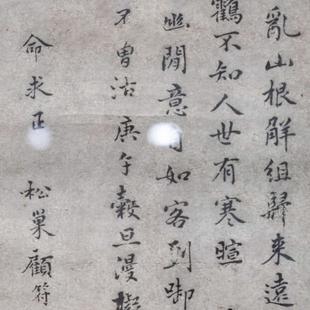 亂山根解組歸來遠
鸛不知人世有寒暄
幽閒意自如客到啣
不曾沽庚午穀旦漫擬
命求正 松巢顧符